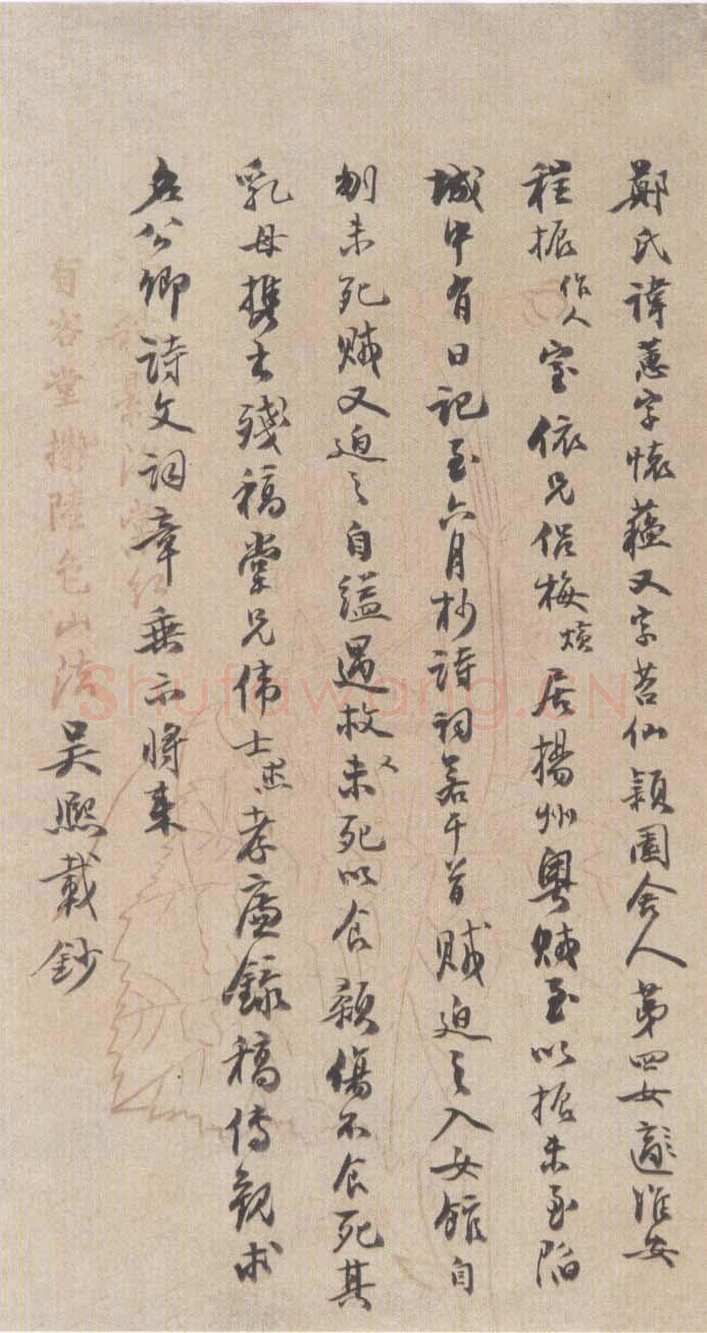 鄭氏諱蕙字懷蘊又字苕仙穎園舍人第四女適淮安
程振作人室依兄侶梅熿居揚州粵賊至以振未至陷
城中有日記至六月抄詩詞若干首賊迫之入女館自
刎未死賊又迫之自縊遇救又未死以食顙傷不食死其
乳母携出殘稿堂兄偉士孝廉錄稿傳觀求
名公卿詩文詞章垂示將來
吳熈載鈔
山
Shufawang.CN